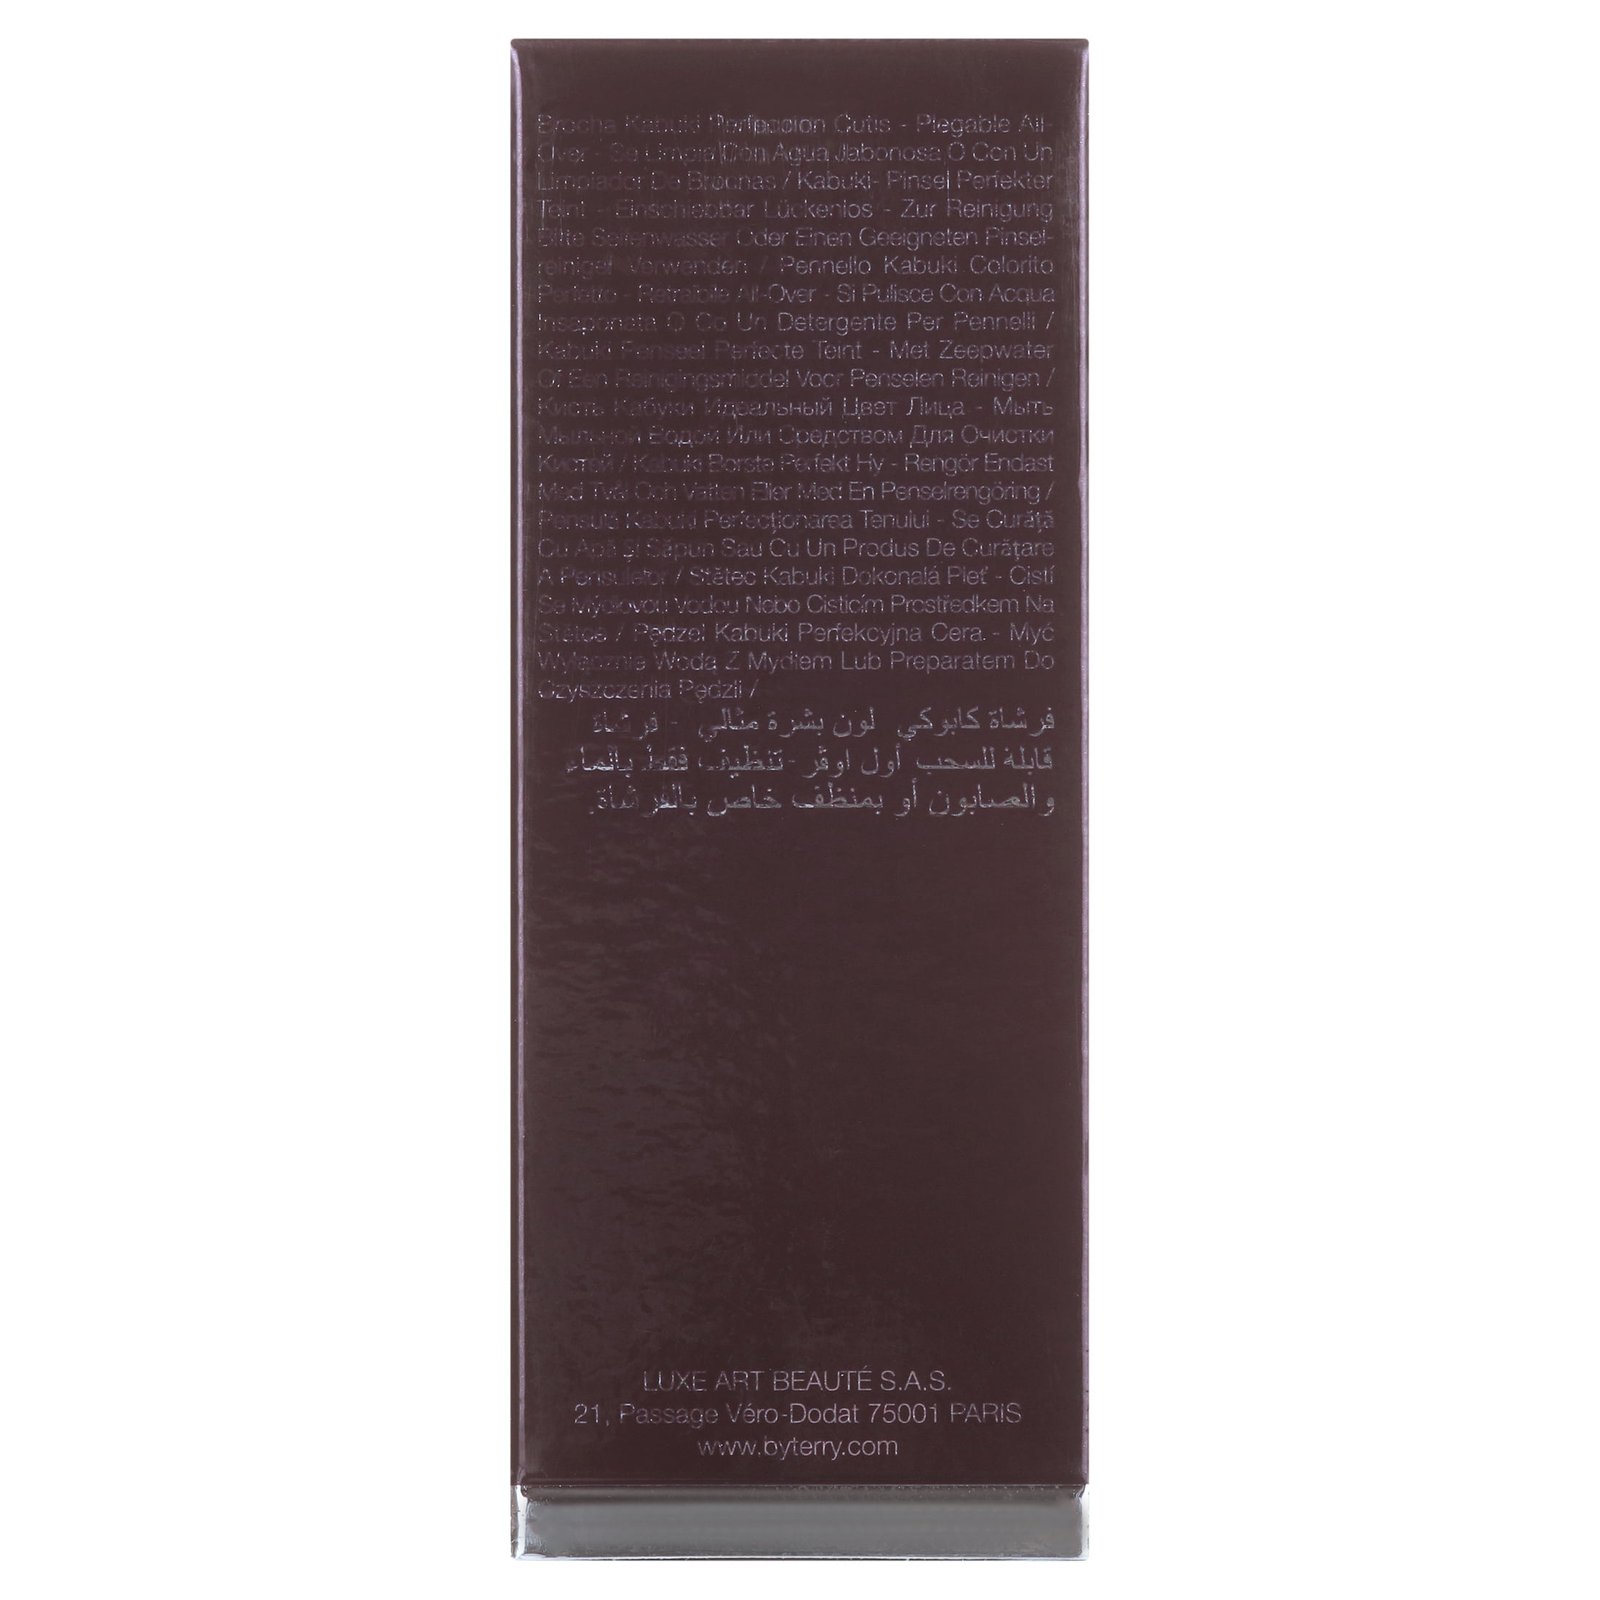 Brocha Kabuki Perfeccion Cutis - Plegable All-
Over - Se Limpia Con Agua Jabonosa O Con Un
Limpiador De Brochas / Kabuki- Pinsel Perfekter
Teint - Einschiebbar Lückenlos - Zur Reinigung
Bitte Seifenwasser Oder Einen Geeigneten Pinsel-
reiniger Verwenden / Pennello Kabuki Colorito
Perfetto - Retraibile All-Over - Si Pulisce Con Acqua
Insaponata O Co Un Detergente Per Pennelli /
Kabuki Penseel Perfecte Teint - Met Zeepwater
Of Een Reinigingsmiddel Voor Penselen Reinigen /
Киста Кабуки Идеальный Цвет Лица - Мыть
Мыльной Водой Или Средством Для Очистки
Кистей / Kabuki Borste Perfekt Hy - Rengör Endast
Med Tvål Och Vatten Eller Med En Penselrengöring /
Pensulă Kabuki Perfecționarea Tenului - Se Curăță
Cu Apă Și Săpun Sau Cu Un Produs De Curățare
A Pensulelor / Štětec Kabuki Dokonalá Pleť - Cistí
Se Mýdlovou Vodou Nebo Cisticím Prostředkem Na
Štětce / Pędzel Kabuki Perfekcyjna Cera - Myć
Wyłącznie Wodą Z Mydłem Lub Preparatem Do
Czyszczenia Pędzli /
فرشاة كابوكي لون بشرة مثالي - فرشاة
قابلة للسحب أول اوڤر - تنظيف فقط بالماء
والصابون أو بمنظف خاص بالفرشاة.
LUXE ART BEAUTÉ S.A.S.
21, Passage Véro-Dodat 75001 PARIS
www.byterry.com